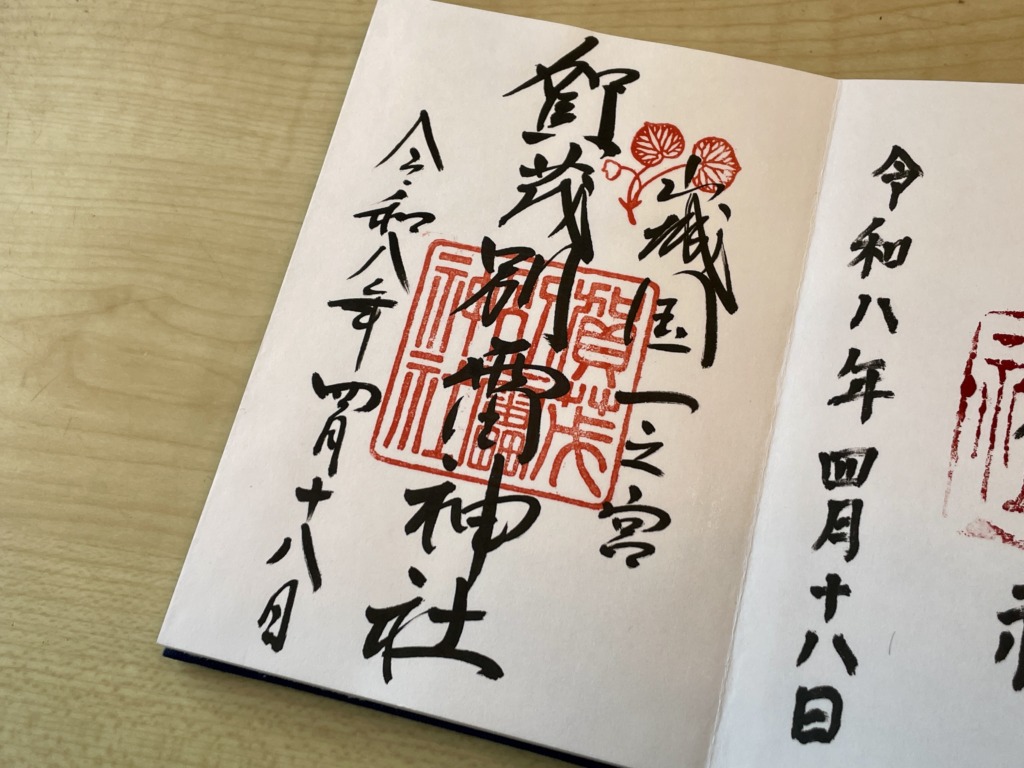 令和八年四月十八日
山城国一之宮
賀茂別雷神社
賀茂
別雷
神社
令和八年四月十八日